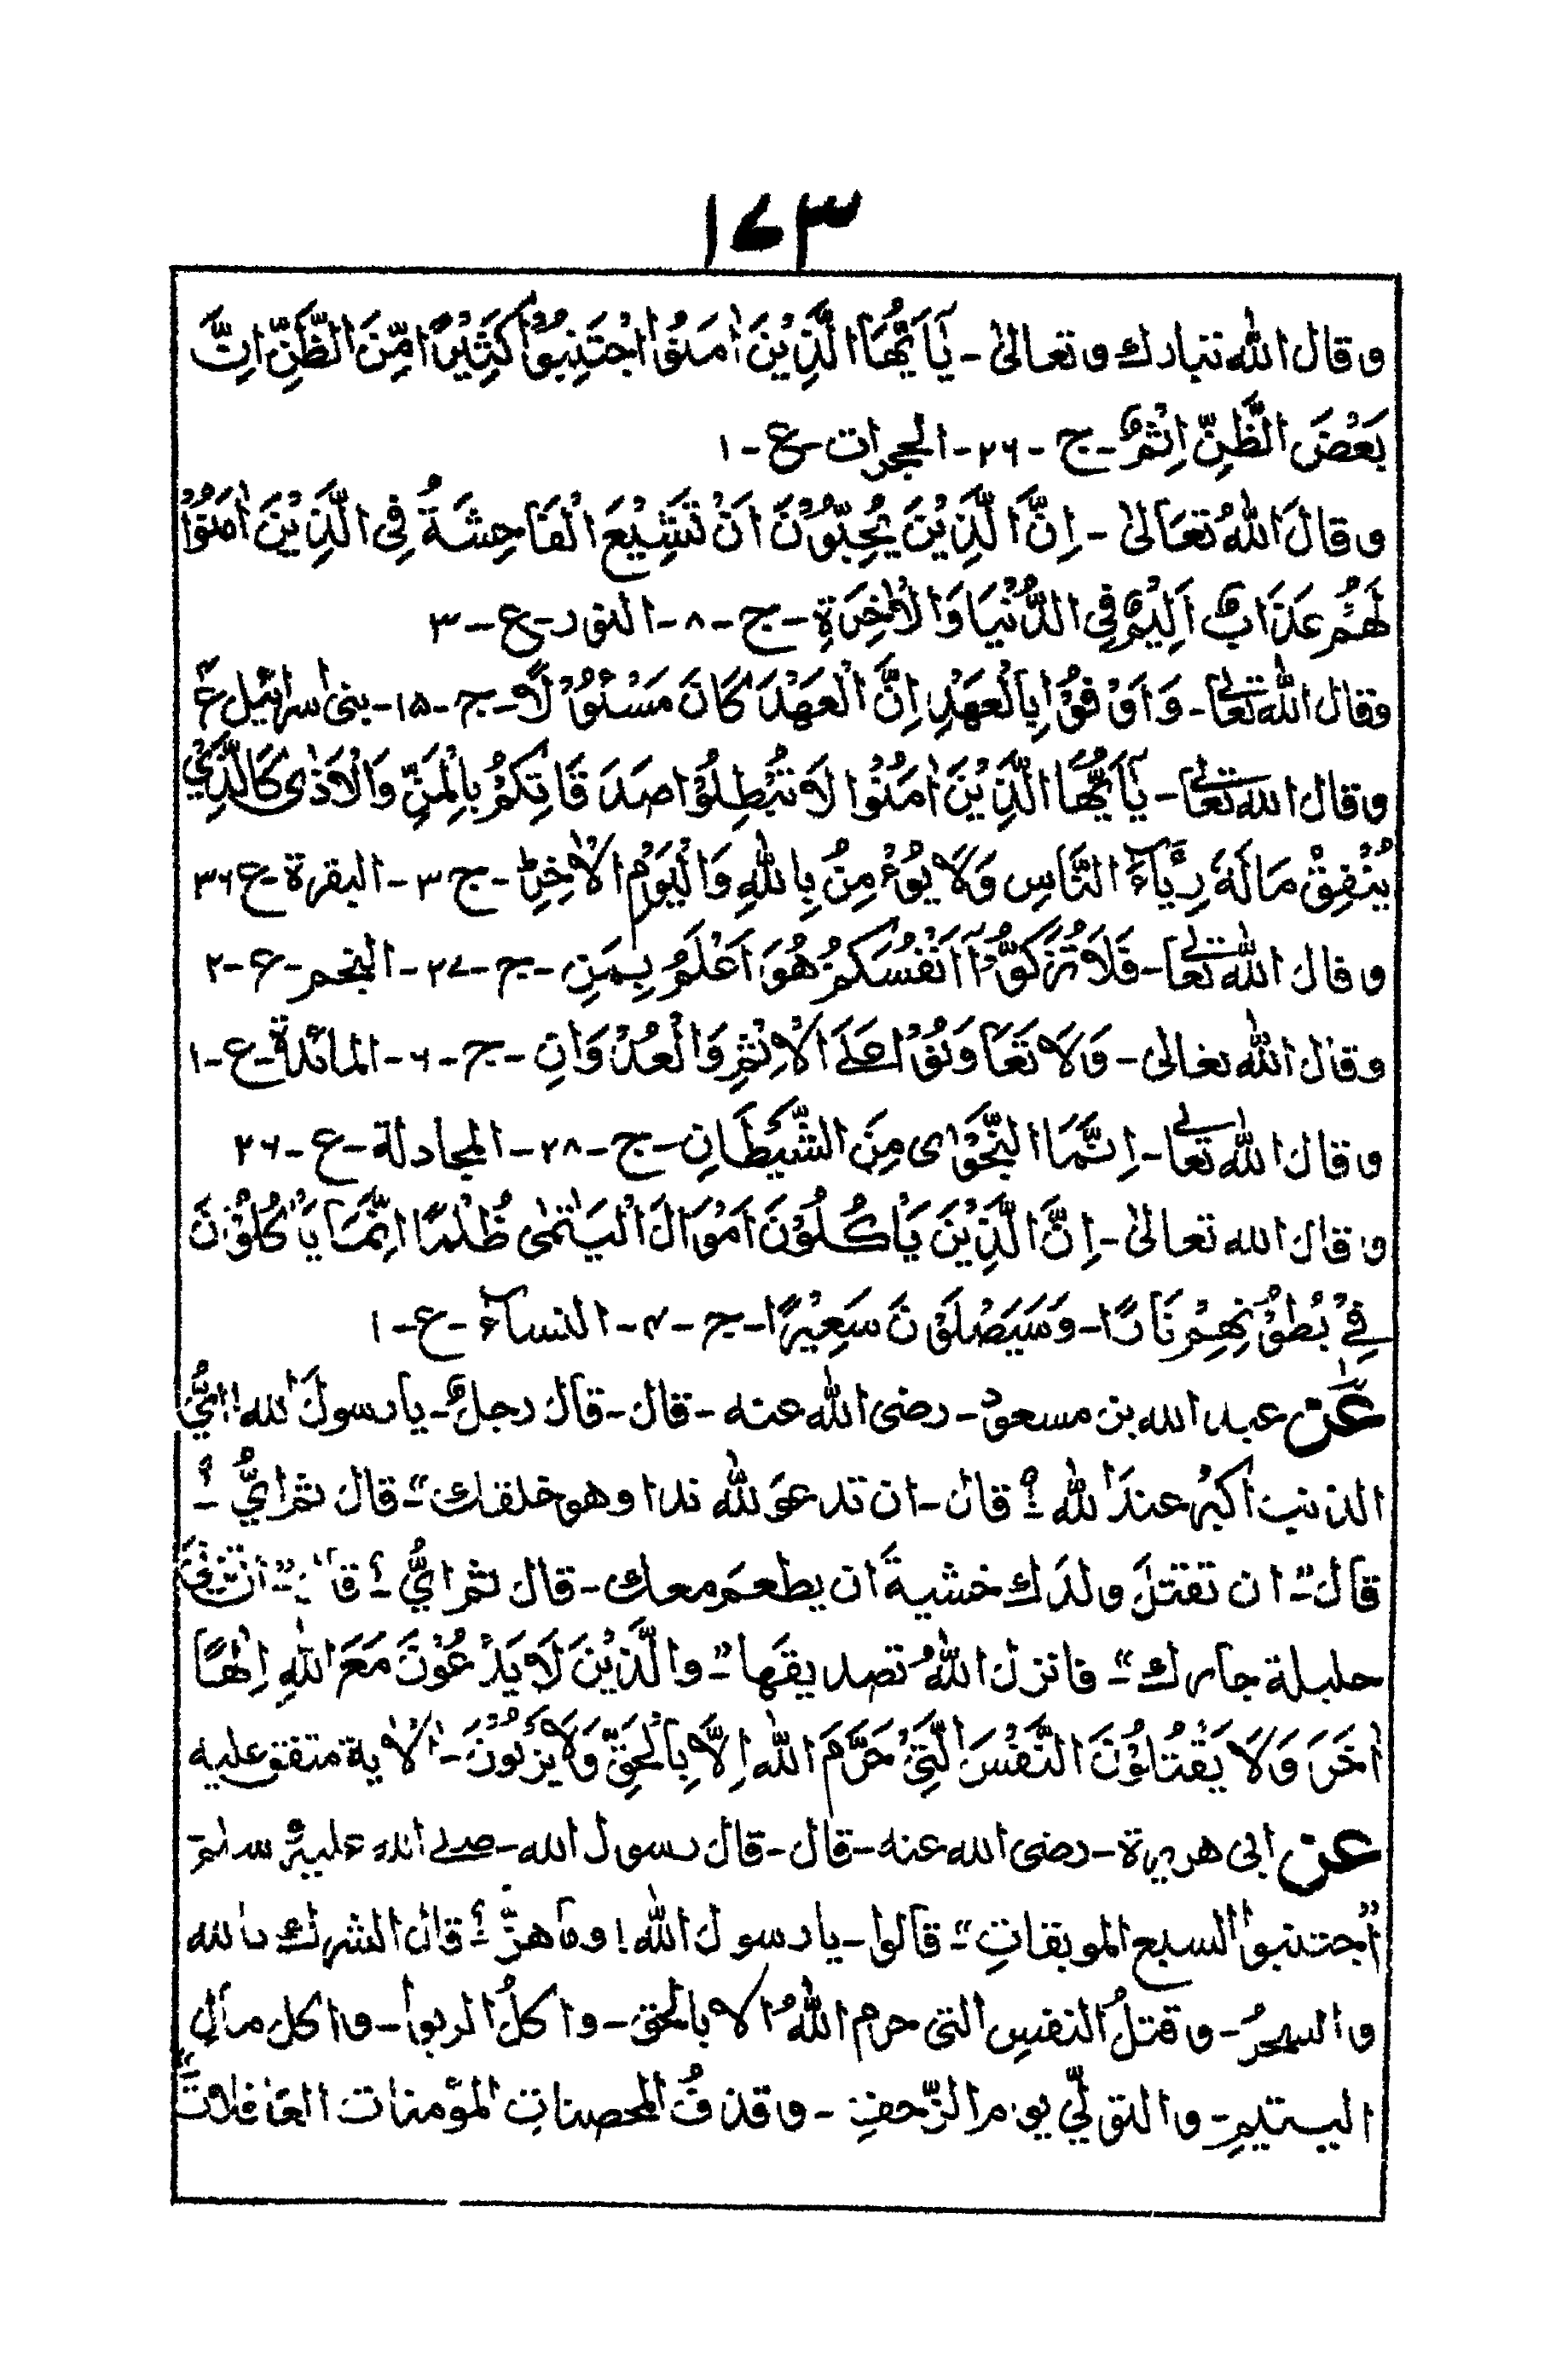 ۱۷۳
وقال الله تبارك وتعالىٰ - يَآ اَيُّهَا الَّذِيْنَ اٰمَنُوا اجْتَنِبُوْا كَثِيْرًا مِّنَ الظَّنِّ اِنَّ
بَعْضَ الظَّنِّ اِثْمٌ - ج - ۲۶ - الحجرات - ع - ۱
وقالَ اللهُ تعَالىٰ - اِنَّ الَّذِيْنَ يُحِبُّوْنَ اَنْ تَشِيْعَ الْفَاحِشَةُ فِى الَّذِيْنَ اٰمَنُوْا
لَهُمْ عَذَابٌ اَلِيْمٌ فِى الدُّنْيَا وَالْاٰخِرَةِ - ج - ۸ - النور - ع - ۳
وقال الله تعالى - وَاَوْفُوْا بِالْعَهْدِ اِنَّ الْعَهْدَ كَانَ مَسْئُوْلًا - ج - ۱۵ - بنى اسرائيل ع
وقال الله تعالى - يٰۤاَيُّهَا الَّذِيْنَ اٰمَنُوْا لَا تُبْطِلُوْا صَدَقَاتِكُمْ بِالْمَنِّ وَالْاَذٰى كَالَّذِيْ
يُنْفِقُ مَالَهٗ رِيَآءَ النَّاسِ وَلَا يُوْمِنُ بِاللهِ وَالْيَوْمِ الْاٰخِرِ - ج ۳ - البقرة - ع ۳۶
وقال الله تعالى - فَلَا تُزَكُّوْآ اَنْفُسَكُمْ هُوَ اَعْلَمُ بِمَنِ - ج - ۲۷ - النجم - ع - ۲
وقال الله تعالى - وَلَا تَعَاوَنُوْا عَلَى الْاِثْمِ وَالْعُدْوَانِ - ج - ۶ - المائدة - ع - ۱
وقال الله تعالى - اِنَّمَا النَّجْوٰى مِنَ الشَّيْطَانِ - ج - ۲۸ - المجادلة - ع - ۲۶
وقال الله تعالىٰ - اِنَّ الَّذِيْنَ يَأْكُلُوْنَ اَمْوَالَ الْيَتٰمٰى ظُلْمًا اِنَّمَا يَأْكُلُوْنَ
فِىْ بُطُوْنِهِمْ نَارًا - وَسَيَصْلَوْنَ سَعِيْرًا - ج - ۴ - النسآء - ع - ۱
عَن عبد الله بن مسعود - رضى الله عنه - قال - قال رجلٌ - يا رسولَ الله! اىُّ
الذنب اكبرُ عندَ الله ؟ قال - ان تدعوَ لله ندا وهو خلقك" - قال ثم اىُّ - ؟
قال" - ان تقتلَ ولدَك خشيةَ ان يطعمَ معك - قال ثم اىُّ - ؟ قال" - ان تزنىَ
حليلة جارك" - فانزل اللهُ تصديقَها" - والَّذِيْنَ لَا يَدْعُوْنَ مَعَ اللهِ اِلٰهًا
اٰخَرَ وَلَا يَقْتُلُوْنَ النَّفْسَ الَّتِىْ حَرَّمَ اللهُ اِلَّا بِالْحَقِّ وَلَا يَزْنُوْنَ - الاٰية متفق عليه
عن ابى هريرة - رضى الله عنه - قال - قال رسول الله - صلى الله عليه وسلم
"اجتنبوا السبع الموبقاتِ" - قالوا - يا رسول الله! وما هنّ ؟ قال الشرك بالله
والسحرُ - وقتلُ النفسِ التى حرم اللهُ الا بالحق - واكلُ الربوا - واكل مالِ
اليتيمِ - والتولّي يوم الزّحفِ - وقذفُ المحصناتِ المؤمنات الغافلات"